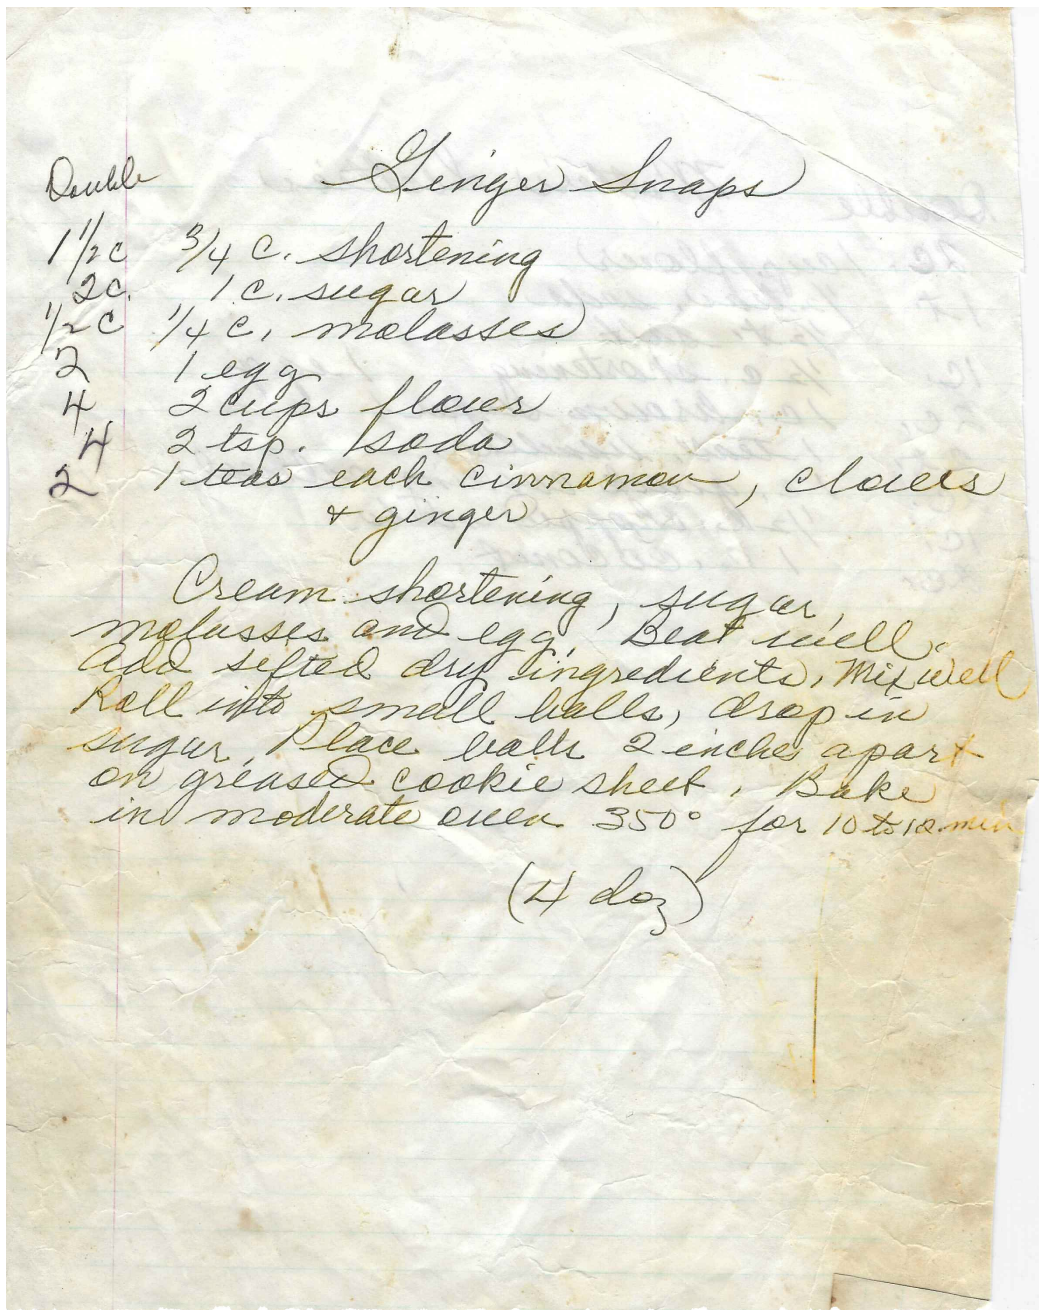 Double Ginger Snaps
1 1/2 c 3/4 c. shortening
2c. 1 c. sugar
1/2 c 1/4 c. molasses
2 1 egg
4 2 cups flour
4 2 tsp. soda
2 1 teas each cinnamon, cloves
+ ginger
Cream shortening, sugar,
molasses and egg. Beat well.
Add sifted dry ingredients. Mix well
Roll into small balls, drop in
sugar. Place balls 2 inches apart
on greased cookie sheet. Bake
in moderate oven 350° for 10 to 12 min
(4 doz)